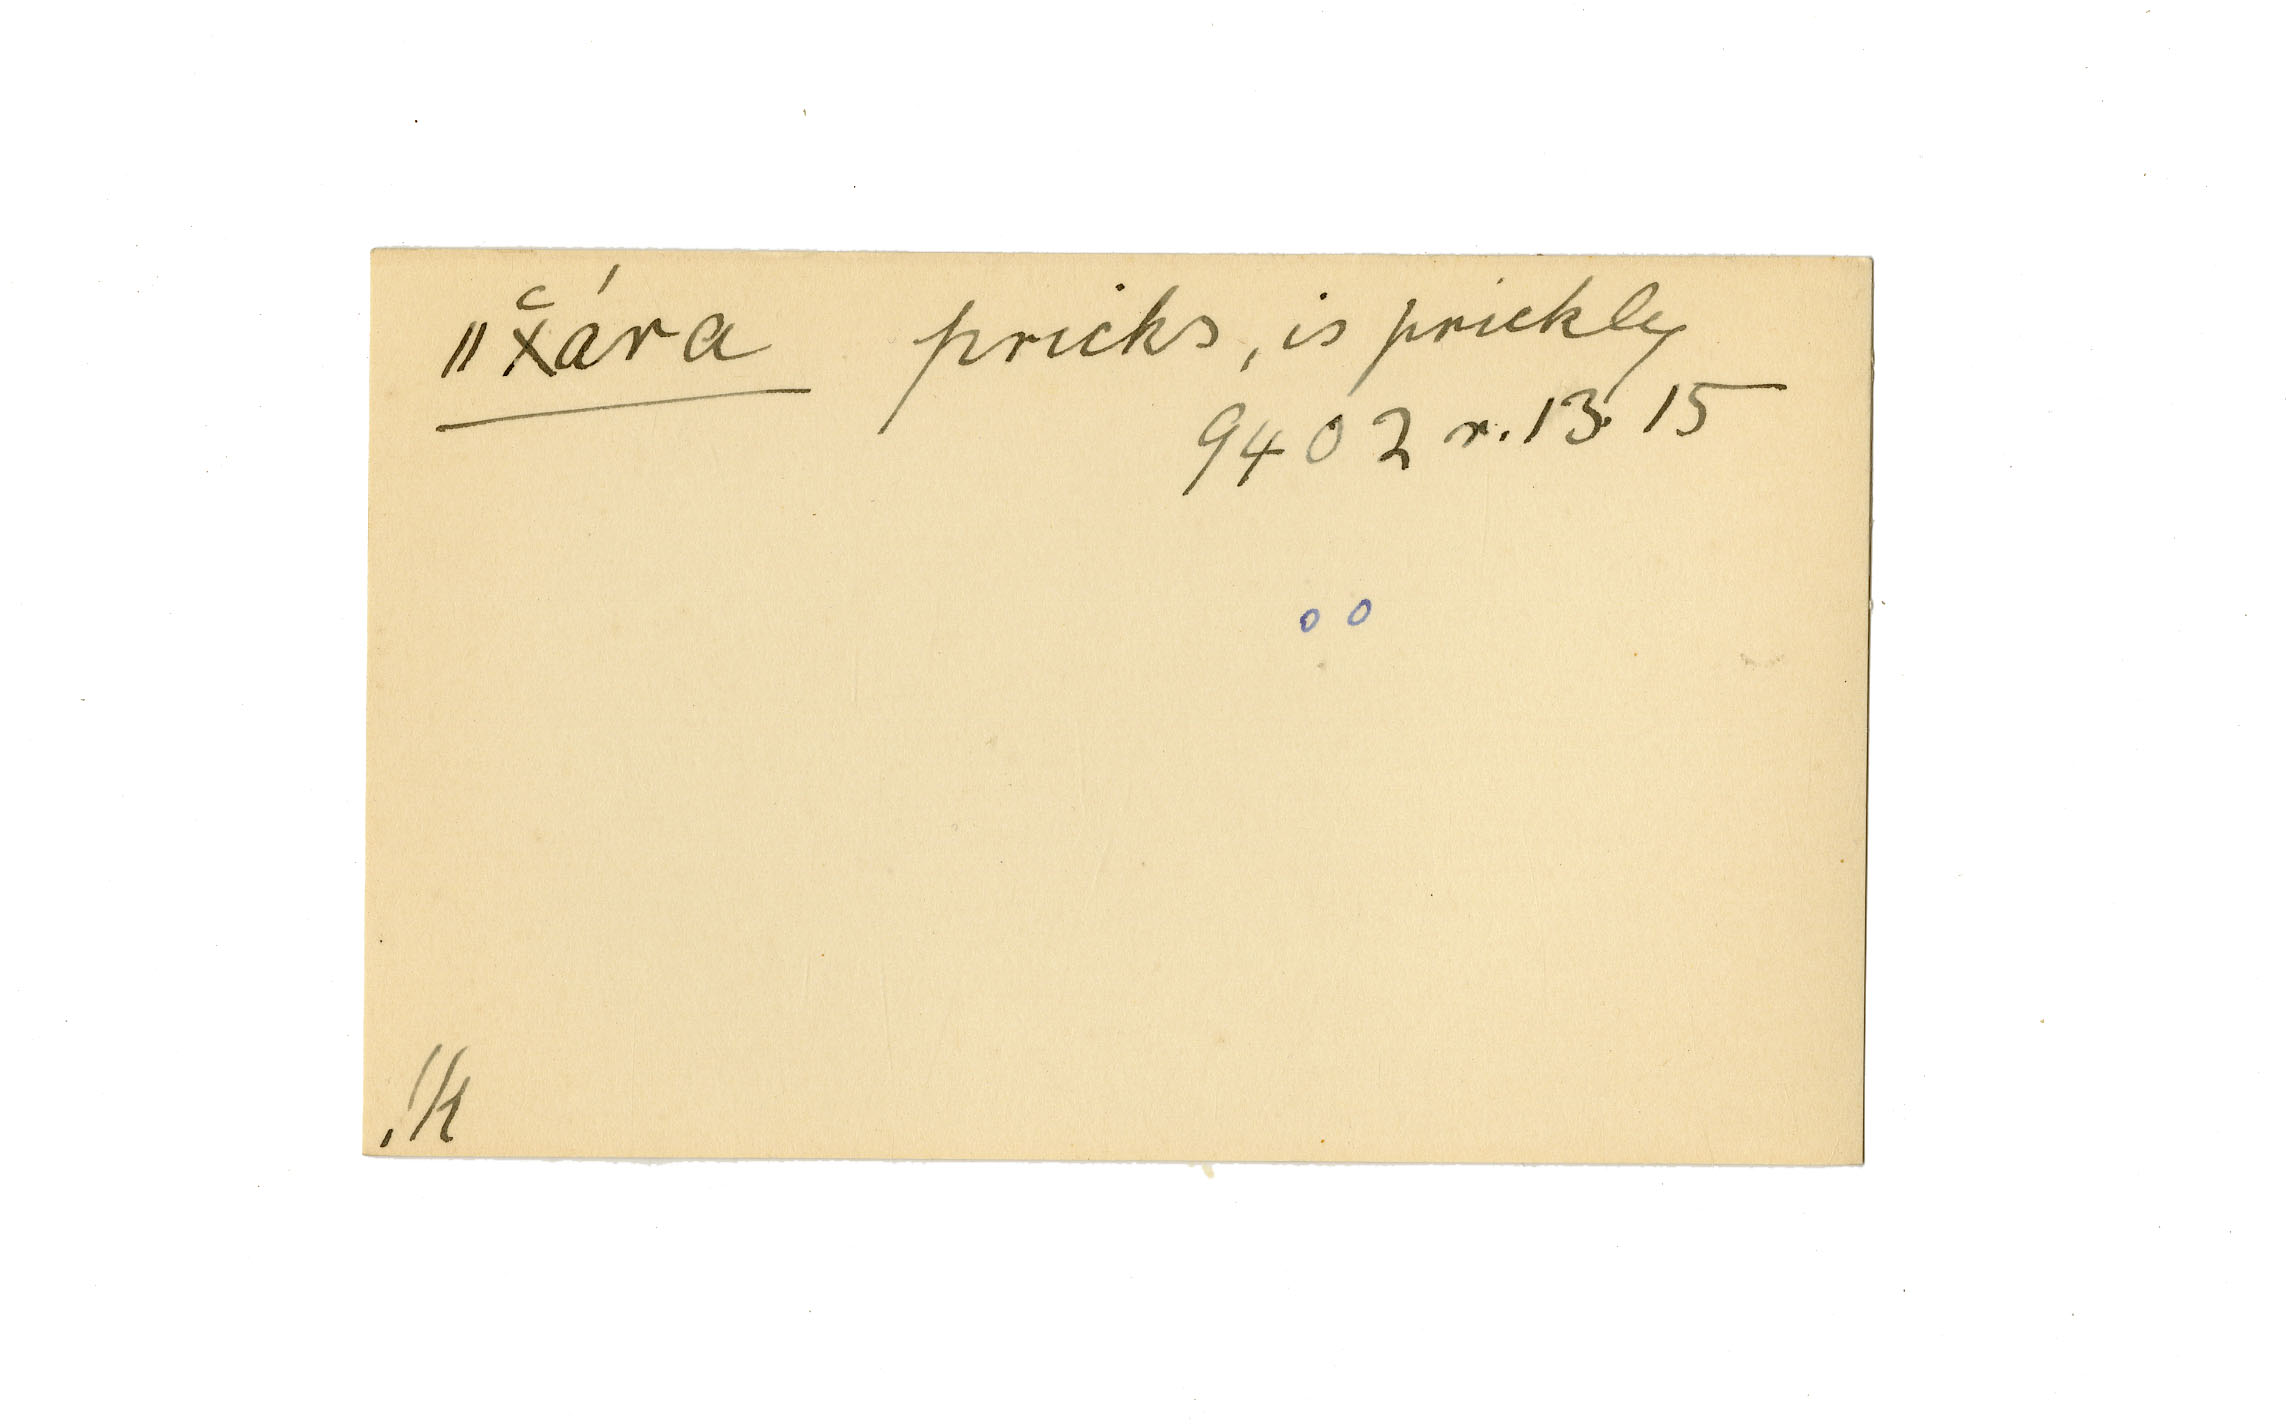 ǁx̆ára pricks, is prickly
9402 r. 13. 15
o o